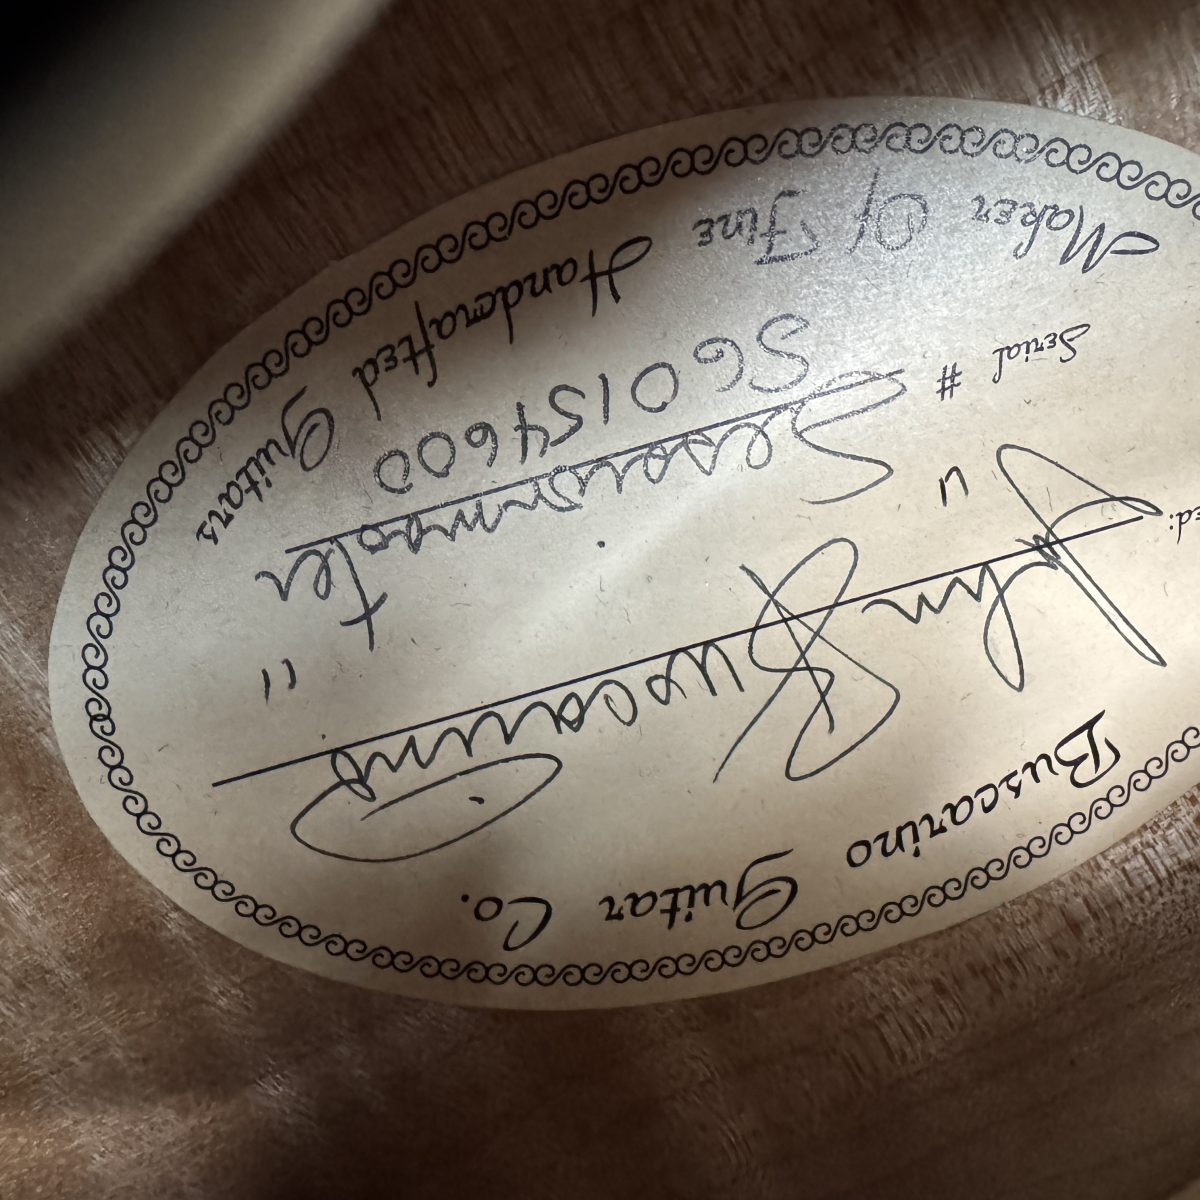 Buscarino Guitar Co.
ed: John Buscarino
Serial # SG0154600
Maker Of Fine Handcrafted Guitars